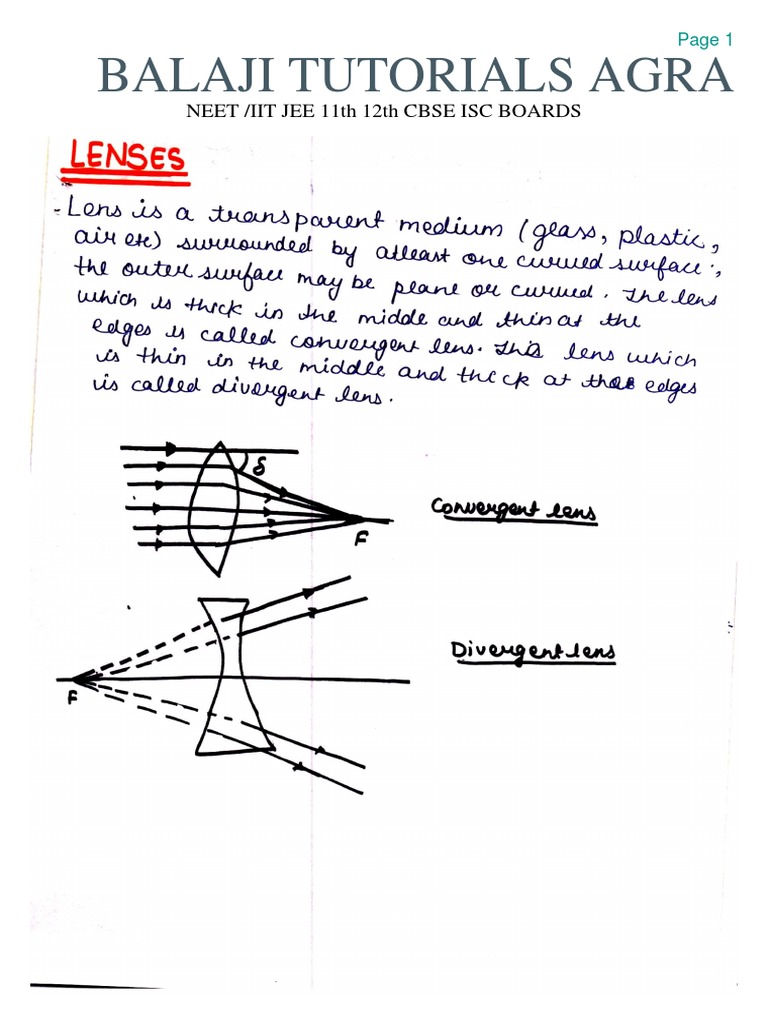 Page 1
BALAJI TUTORIALS AGRA
NEET /IIT JEE 11th 12th CBSE ISC BOARDS
LENSES
- Lens is a transparent medium (glass, plastic,
air etc) surrounded by atleast one curved surface,
the outer surface may be plane or curved. The lens
which is thick in the middle and thin at the
edges is called convergent lens. This lens which
is thin in the middle and thick at the edges
is called divergent lens.
δ
Convergent lens
F
Divergent lens
F